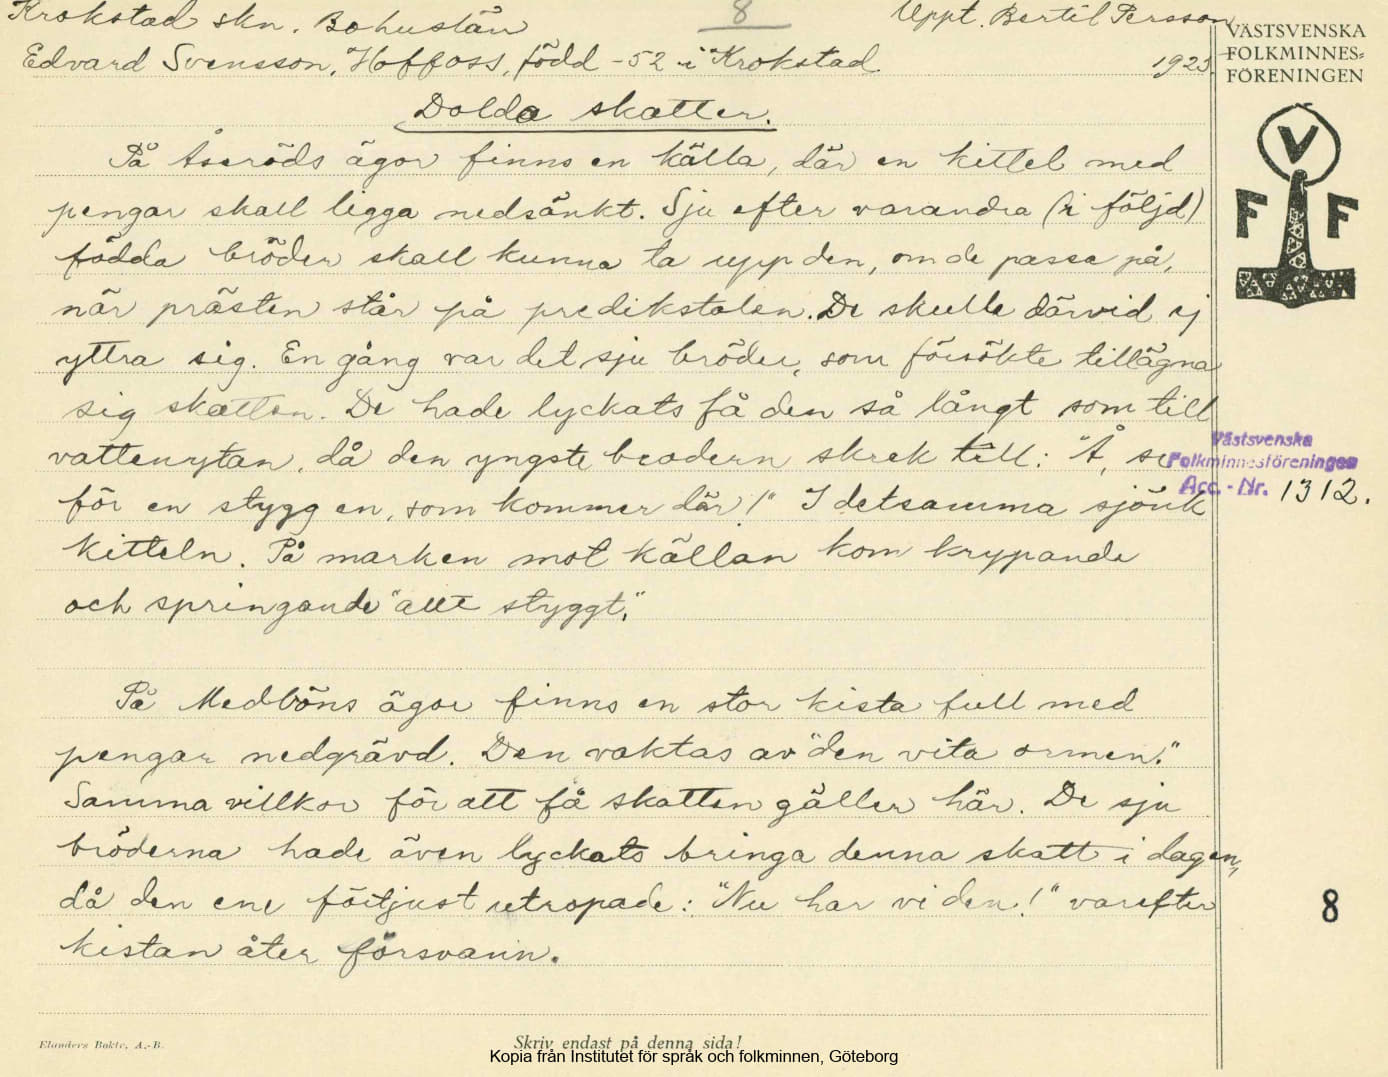 Krokstad skn. Bohuslän
8
Uppt. Bertil Persson
Edvard Svensson, Hoffoss, född -52 i Krokstad.
1923.
VÄSTSVENSKA
FOLKMINNES=
FÖRENINGEN
Dolda skatter.
V
F F
På Åseröds ägor finns en källa, där en kittel med
pengar skall ligga nedsänkt. Sju efter varandra (i följd)
födda bröder skall kunna ta upp den, om de passa på,
när prästen står på predikstolen. De skulle därvid ej
yttra sig. En gång var det sju bröder, som försökte tillägna
sig skatten. De hade lyckats få den så långt som till
vattenytan, då den yngste brodern skrek till: "Å, se
för en stygg en, som kommer där!" I detsamma sjönk
kitteln. På marken mot källan kom krypande
och springande "allt styggt."
Västsvenska
Folkminnesföreningen
Acc. - Nr. 1312.
På Medböns ägor finns en stor kista full med
pengar nedgrävd. Den vaktas av "den vita ormen."
Samma villkor för att få skatten gäller här. De sju
bröderna hade även lyckats bringa denna skatt i dagen,
då den ene förtjust utropade: "Nu har vi den!" varefter
kistan åter försvann.
8
Elanders Boktr. A.-B.
Skriv endast på denna sida!
Kopia från Institutet för språk och folkminnen, Göteborg